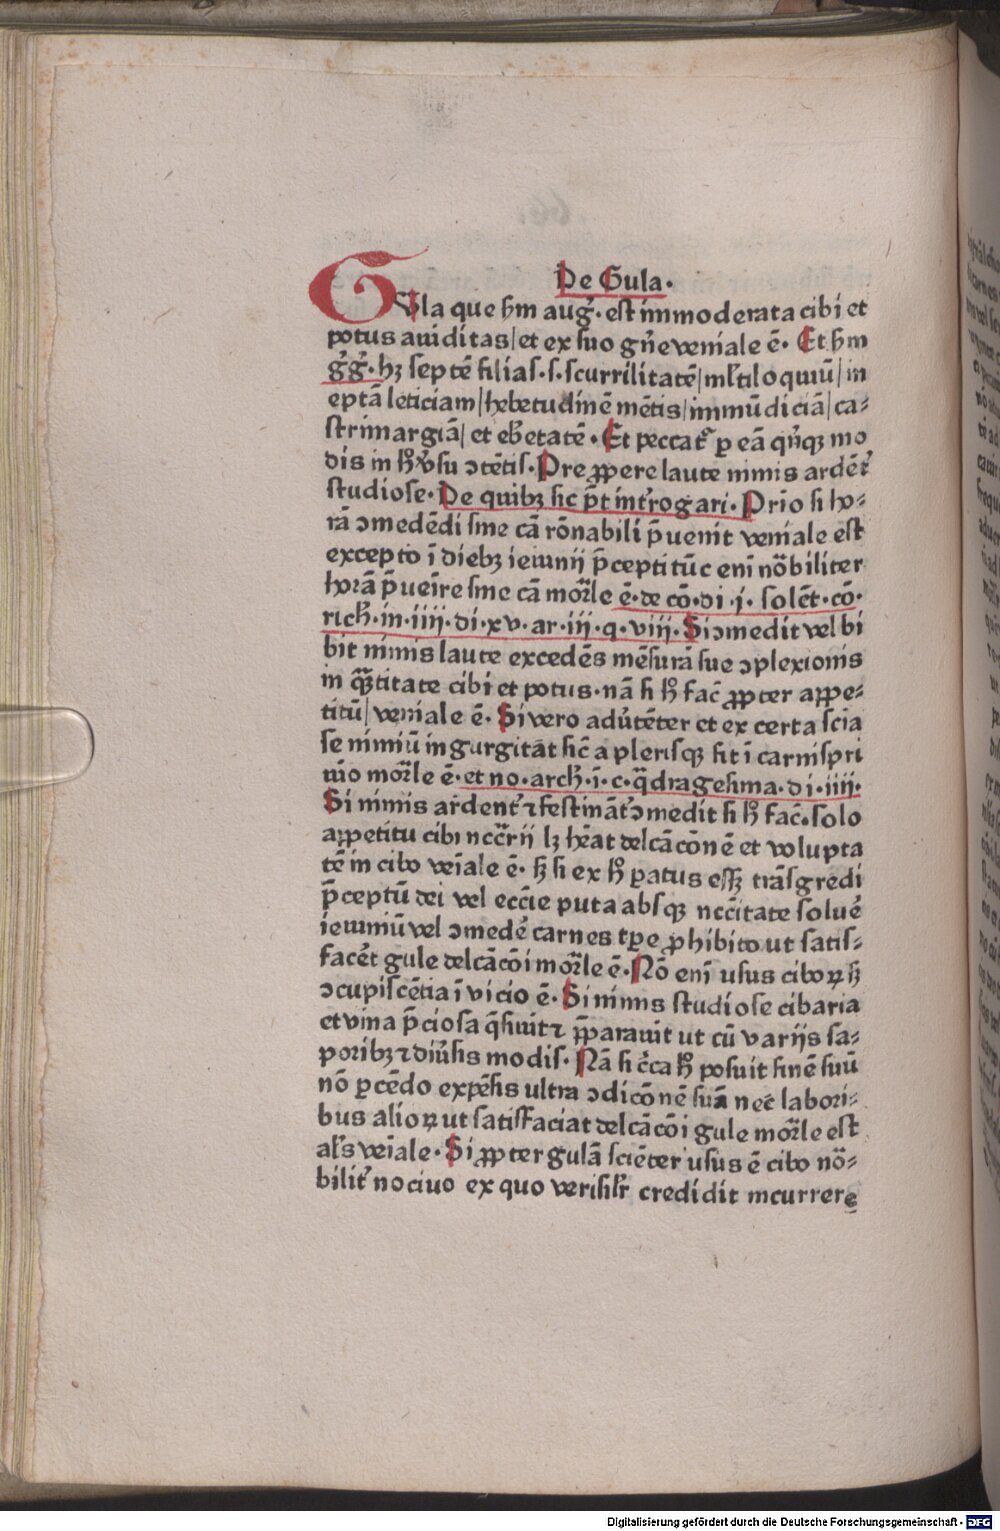 De Gula.
GUla que scḋm aug̕. est immoderata cibi et
potus auiditas/et ex suo gn̄e veniale ē. Et scḋm
g̕g̕. hꝫ septē filias.s.scurrilitatē/ml̕tiloquiū/in
eptā leticiam/hebetudinē mētis/immūdiciā/ca⸗
strimargiā/et eb̕etatē. Et peccat᷑ p eā qn̄qꝫ mo
dis in h̕ v̕su ꝯtētis. Pre ꝓpere laute nimis ardēt᷑
studiose. De quibꝫ sic pt̄ int̕rogari. Prīo si ho⸗
rā ꝯmedēdi sine cā rōnabili p̄uenit veniale est
excepto ī diebꝫ ieiunij p̄cepti tūc eni nōbiliter
horā p̄ueīre sine cā mor̄le ē. de cō. di .j. solēt. cō.
rich̕. in .iiij. di. xv. ar. iij. q. viij. Si ꝯmedit vel bi
bit nimis laute excedēs mēsurā sue ꝯplexionis
in q̄ꝫtitate cibi et potus. nā si h̕ fac̄ ꝓpter appe⸗
titū/veniale ē. Si vero adu̕tēter et ex certa scīa
se nimiū ingurgitāt sic̄ a plerisqꝫ fit ī carnispri
uio mor̄le ē. et no. arch̕. ī. c. q̄dragesima. di. iiij.
Si nimis ardent᷑ ⁊ festināt᷑ ꝯmedit si h̕ fac̄. solo
appetitu cibi nccr̄ij lꝫ hēat delcācōnē et volupta
tē in cibo veīale ē. sꝫ si ex h̕ ꝑatus essꝫ trāsgredi
p̄ceptū dei vel ecc̄ie puta absqꝫ ncc̄itate solue̕
ieiuniū vel ꝯmede̕ carnes tp̄e prohibito ut satis⸗
face̕t gule delcācōi mor̄le ē. Nō eni usus ciboꝝ sꝫ
ꝯcupiscētia ī vicio ē. Si nimis studiose cibaria
et vina p̄ciosa q̄siuit ⁊ p̄parauit ut cū varijs sa⸗
poribꝫ ⁊ diu̕sis modis. Nā si c̄ca h̕ posuit finē suū
nō ꝑcēdo expēsis ultra ꝯdicōnē suā nec labori⸗
bus alioꝝ ut satisfaciat delcācōi gule mor̄le est
al̕s veīale. Si ꝓpter gulā sciēter usus ē cibo nō⸗
bilit᷑ nociuo ex quo verisil̕r credidit incurrere
Digitalisierung gefördert durch die Deutsche Forschungsgemeinschaft - DFG